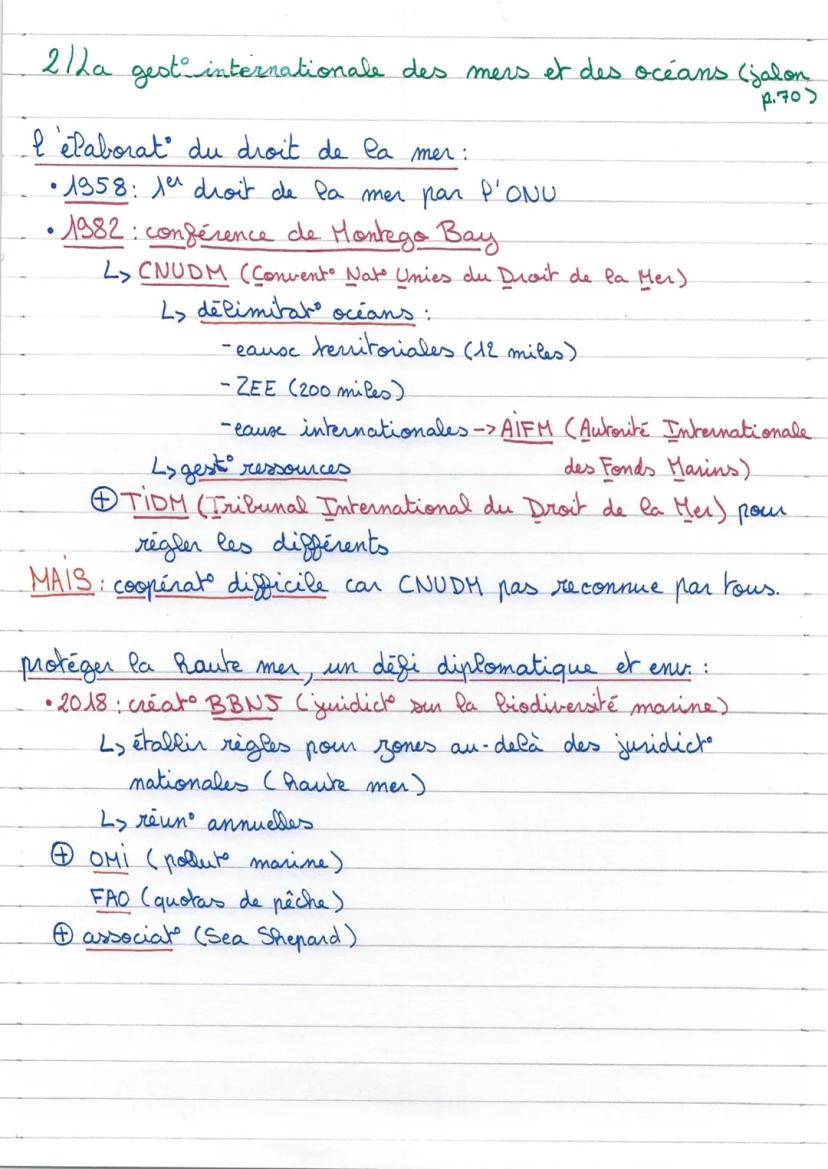 2/ La gest° internationale des mers et des océans (jalon
p.70)
l'élaborat° du droit de la mer :
• 1958 : 1er droit de la mer par l'ONU
• 1982 : conférence de Montego Bay
↳ CNUDM (Convent° Nat° Unies du Droit de la Mer)
↳ délimitat° océans :
- eaux territoriales (12 miles)
- ZEE (200 miles)
- eaux internationales -> AIFM (Autorité Internationale
des Fonds Marins)
↳ gest° ressources
⊕ TIDM (Tribunal International du Droit de la Mer) pour
régler les différents
MAIS : coopérat° difficile car CNUDM pas reconnue par tous.
protéger la haute mer, un défi diplomatique et env. :
• 2018 : créat° BBNJ (juridict° sur la biodiversité marine)
↳ établir règles pour zones au-delà des juridict°
nationales (haute mer)
↳ réun° annuelles
⊕ OMI (pollut° marine)
FAO (quotas de pêche)
⊕ associat° (Sea Shepard)